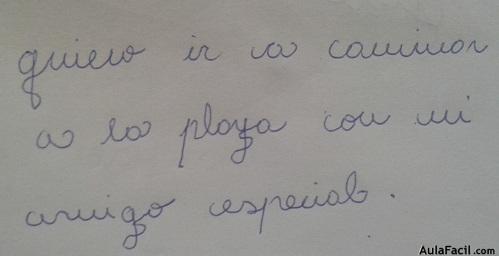 quiero ir a caminar
a la playa con mi
amigo especial.
AulaFacil.com